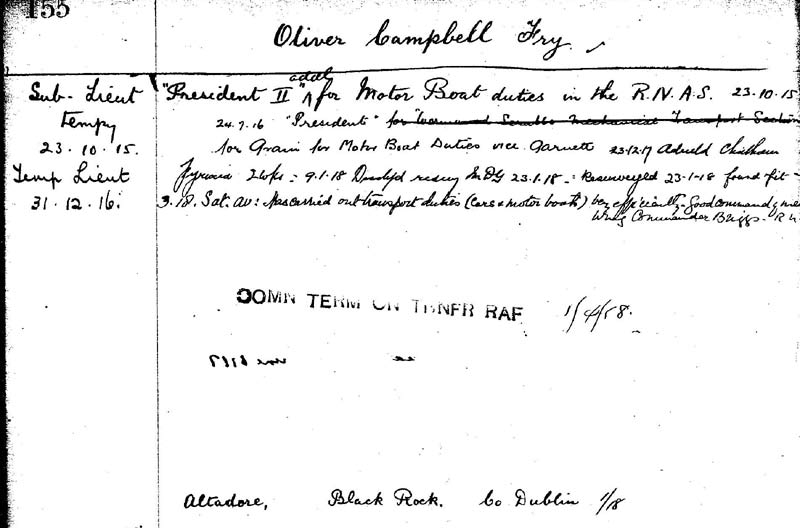 155
Oliver Campbell Fry.
Sub-Lieut
Tempy
23.10.15.
Temp Lieut
31.12.16.
"President II addl for Motor Boat duties in the R.N.A.S. 23.10.15
24.7.16 "President" for Mechanical Transport Section
for Grain for Motor Boat Duties vice Garnett 23.12.17 Chatham
2 wks - 9.1.18 23.1.18 - 23-1-18 found fit -
3.18. Sat. av: Has carried out transport duties (cars & motor boats) very efficiently. Good command
Wing Commander Briggs. R.N
COMN TERM ON TRNFR RAF 1/4/18.
Altadore, Black Rock. Co Dublin 1/18